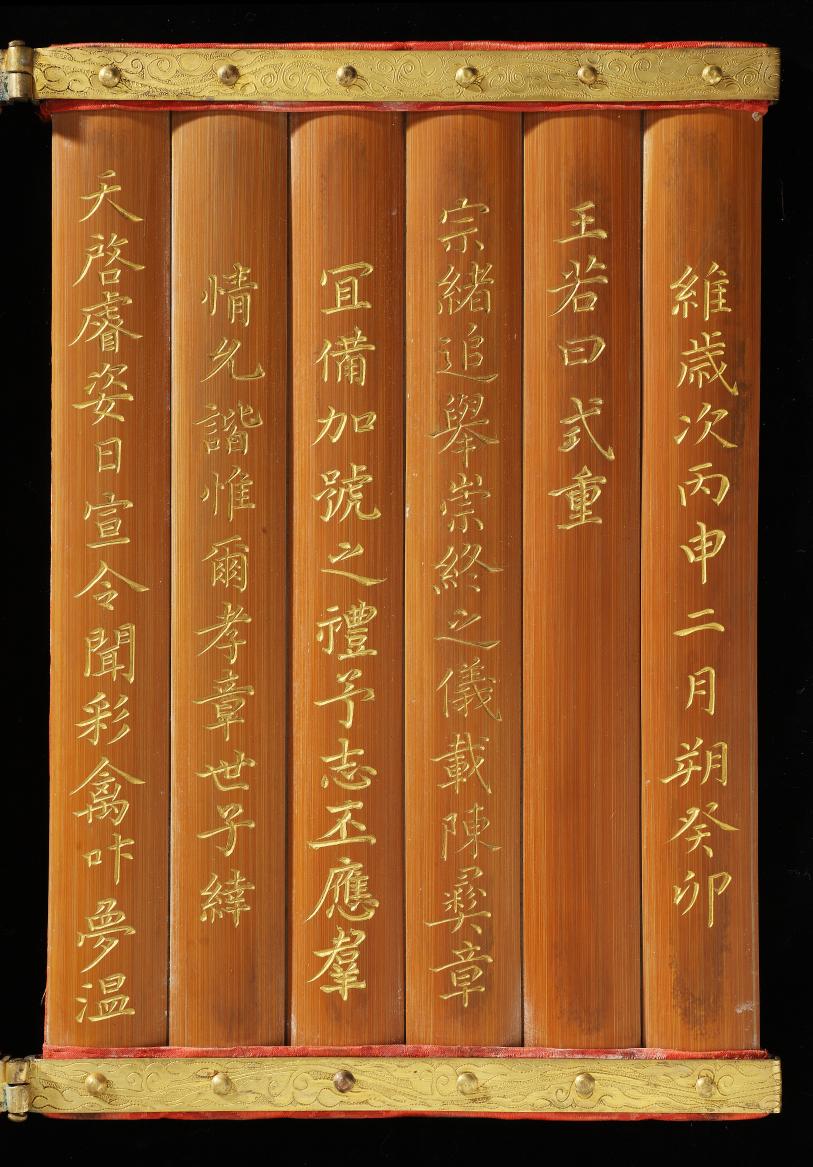 維歲次丙申二月朔癸卯
王若曰式重
宗緖追擧崇終之儀載陳彛章
冝備加號之禮予志丕應羣
情允諧惟爾孝章世子緈
天啓睿姿日宣令聞彩禽咔夢溫